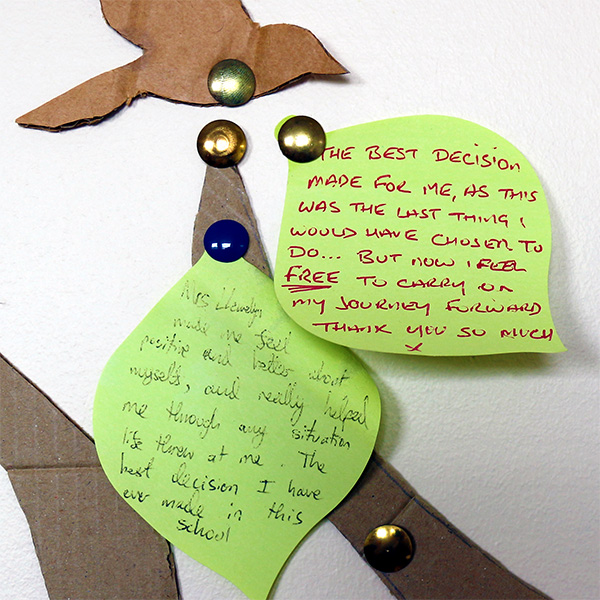 THE BEST DECISION
MADE FOR ME, AS THIS
WAS THE LAST THING I
WOULD HAVE CHOSEN TO
DO... BUT NOW I FEEL
FREE TO CARRY ON
MY JOURNEY FORWARD
THANK YOU SO MUCH
X
Mrs Llewelyn
made me feel
positive and better about
myself, and really helped
me through any situation
life threw at me. The
best decision I have
ever made in this
school